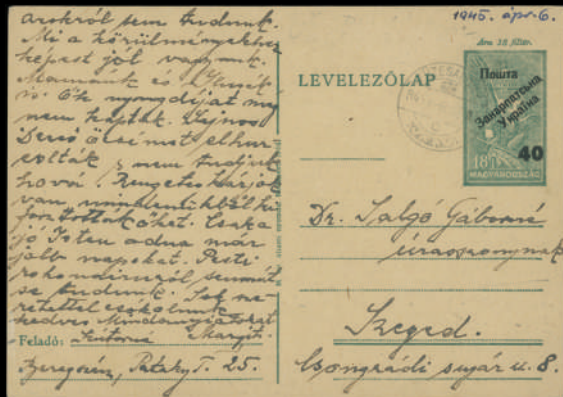 azokról sem tudunk.
Mi a körülményekhez
képest jól vagyunk.
Mamánk és
is. Ők nyugdíjat még
nem kaptak. Sajnos
Dezső öcsémet elhur
colták s nem tudjuk
hová! Rengeteg
van, mindenükből ki
fosztották őket. Csak a
jó Isten adna már
jobb napokat. Pesti
rokonainkról semmit
se tudunk. Sok sze
retettel csókolunk
kedves Mindannyiatokat
Feladó: Margit.
Beregszász, Pataky T. 25.
1945. ápr. 6.
Ára 18 fillér.
LEVELEZŐLAP
Пошта
Закарпатська
Україна
40
18
MAGYARORSZÁG
Dr. Salgó Gáborné
úrasszonynak
Szeged.
Csongrádi sugár u. 8.